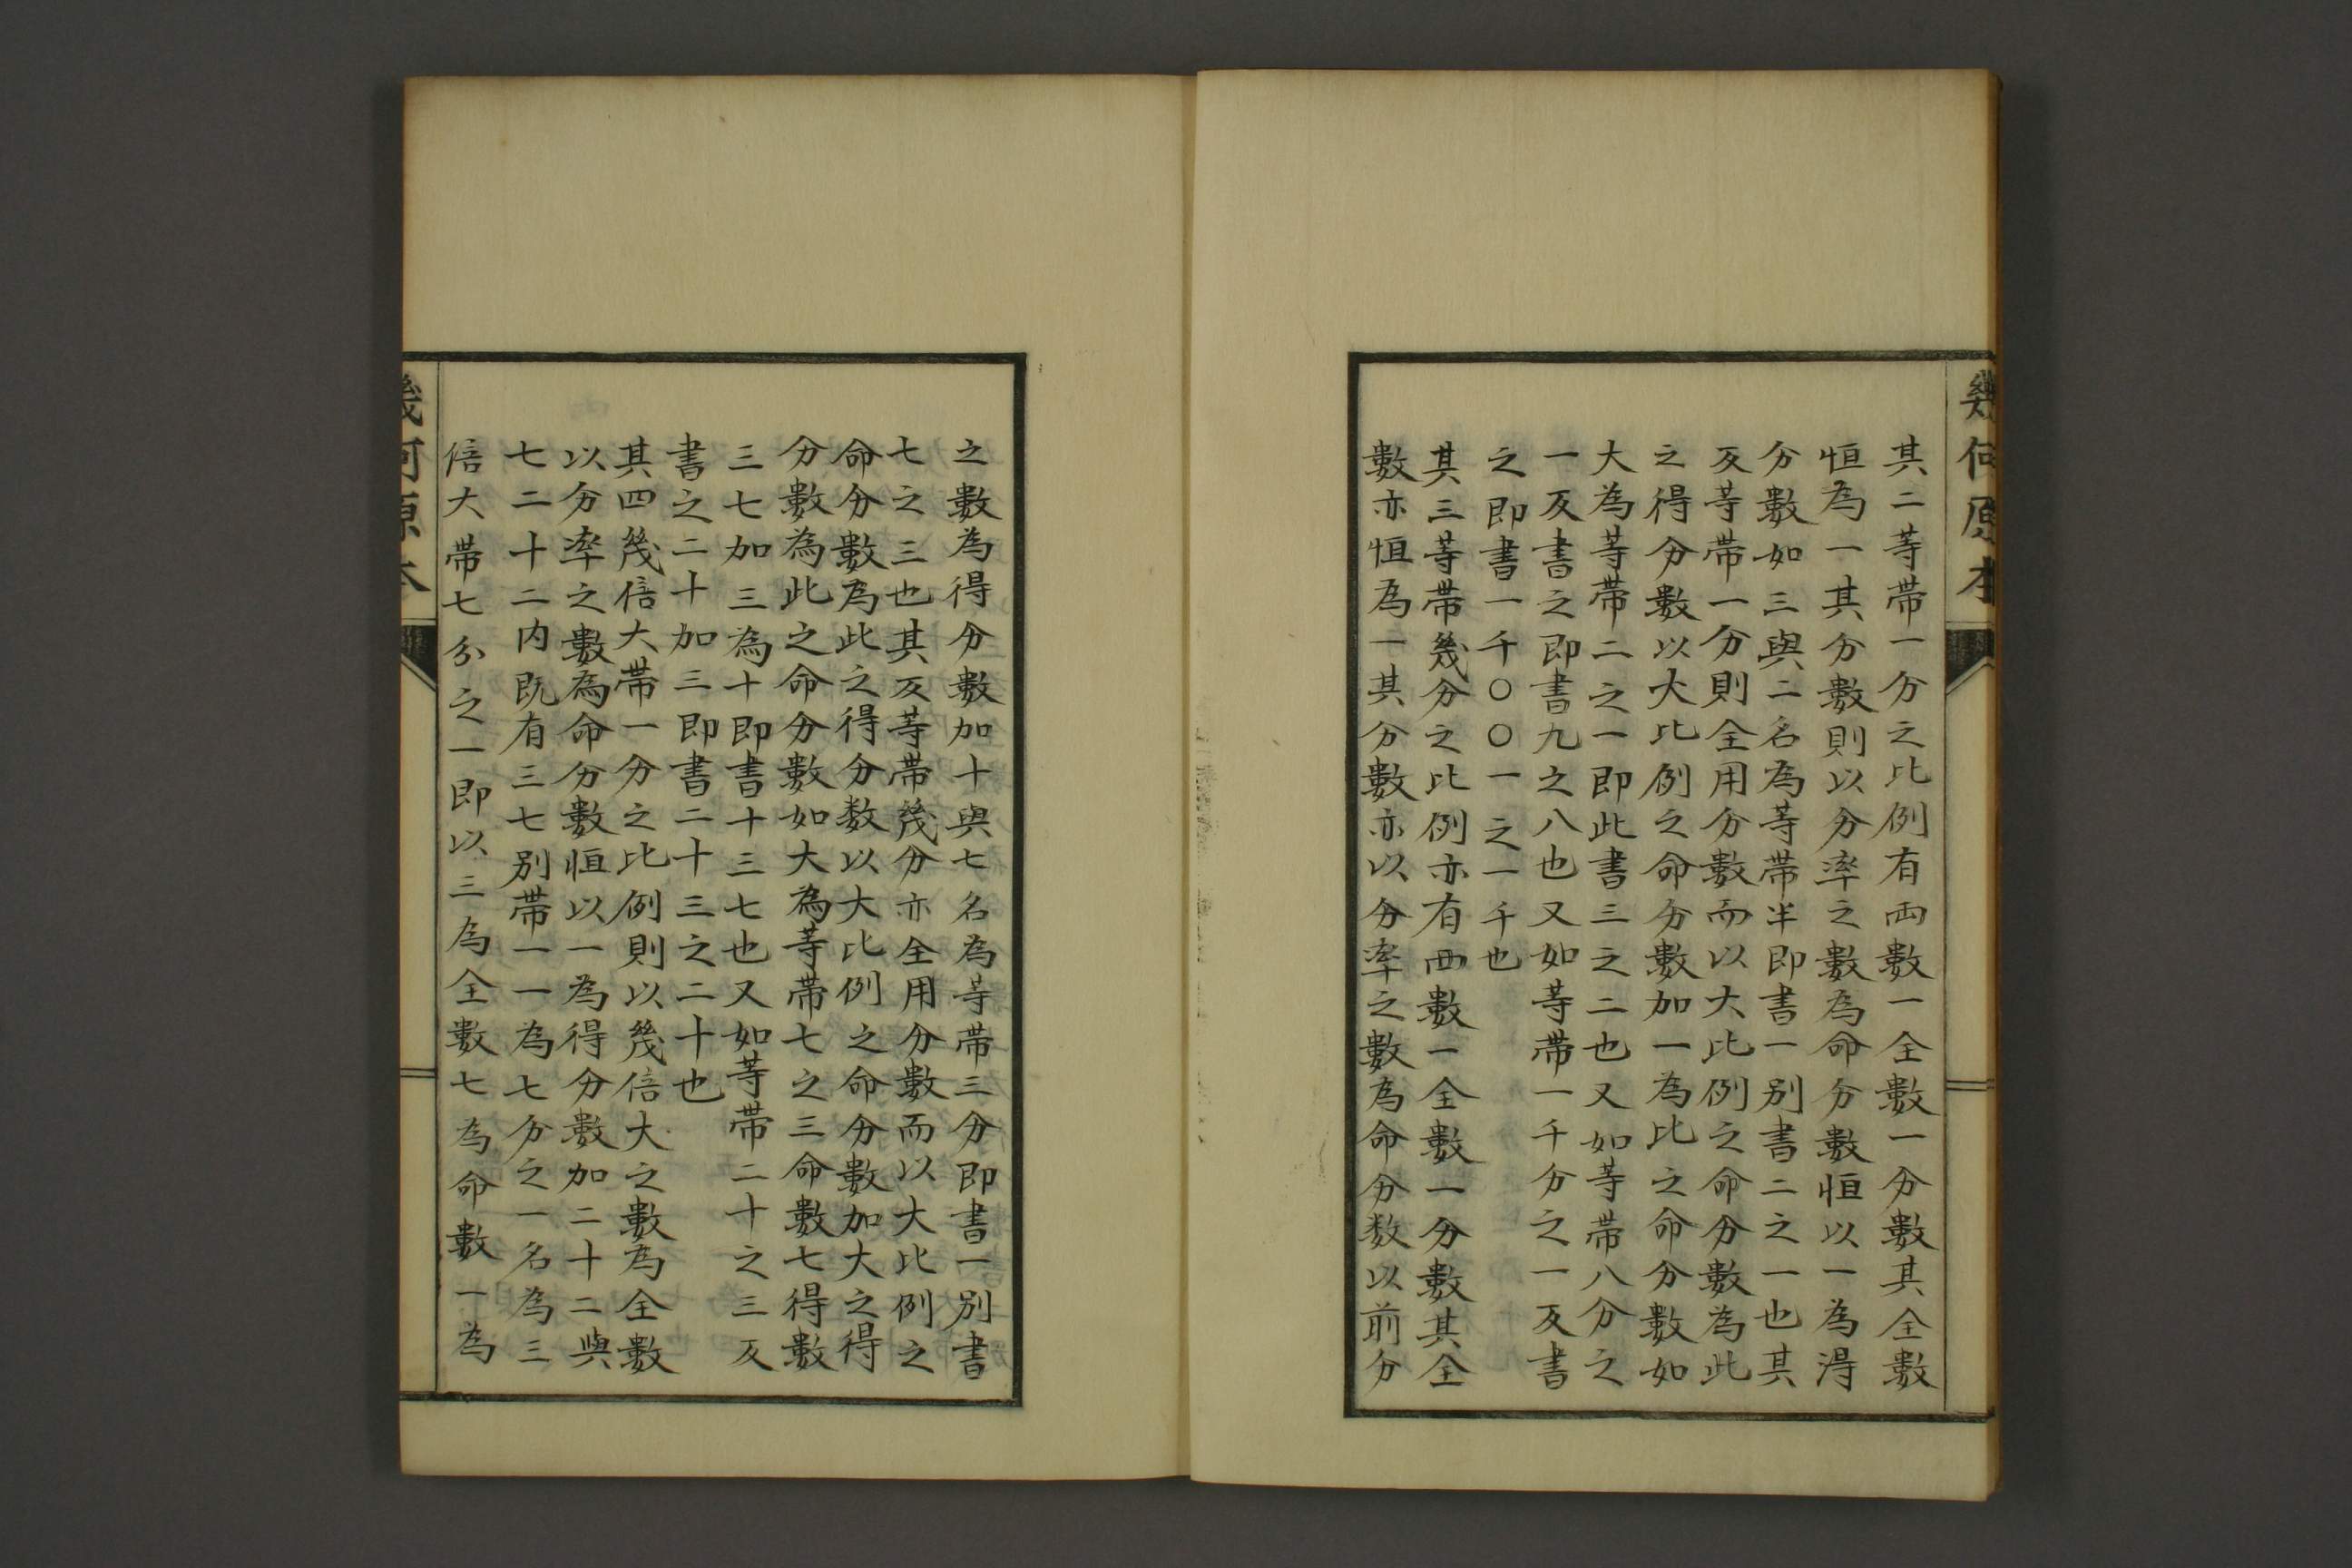 幾何原本
其二等帶一分之比例有兩數一全數一分數其全數
恒為一其分數則以分率之數為命分數恒以一為得
分數如三與二名為等帶半即書一别書二之一也其
反等帶一分則全用分數而以大比例之命分數為此
之得分數以大比例之命分數加一為比之命分數如
大為等帶二之一即此書三之二也又如等帶八分之
一反書之即書九之八也又如等帶一千分之一反書
之即書一千〇〇一之一千也
其三等帶幾分之比例亦有兩數一全數一分數其全
數亦恒為一其分數亦以分率之數為命分数以前分
之數為得分數加十與七名為等帶三分即書一别書
七之三也其反等帶幾分亦全用分數而以大比例之
命分數為此之得分数以大比例之命分數加大之得
分數為此之命分數如大為等帶七之三命數七得數
三七加三為十即書十三七也又如等帶二十之三反
書之二十加三即書二十三之二十也
其四幾倍大帶一分之比例則以幾倍大之數為全數
以分率之數為命分數恒以一為得分數加二十二與
七二十二内既有三七别帶一一為七分之一名為三
倍大帶七分之一即以三為全數七為命數一為
幾何原本